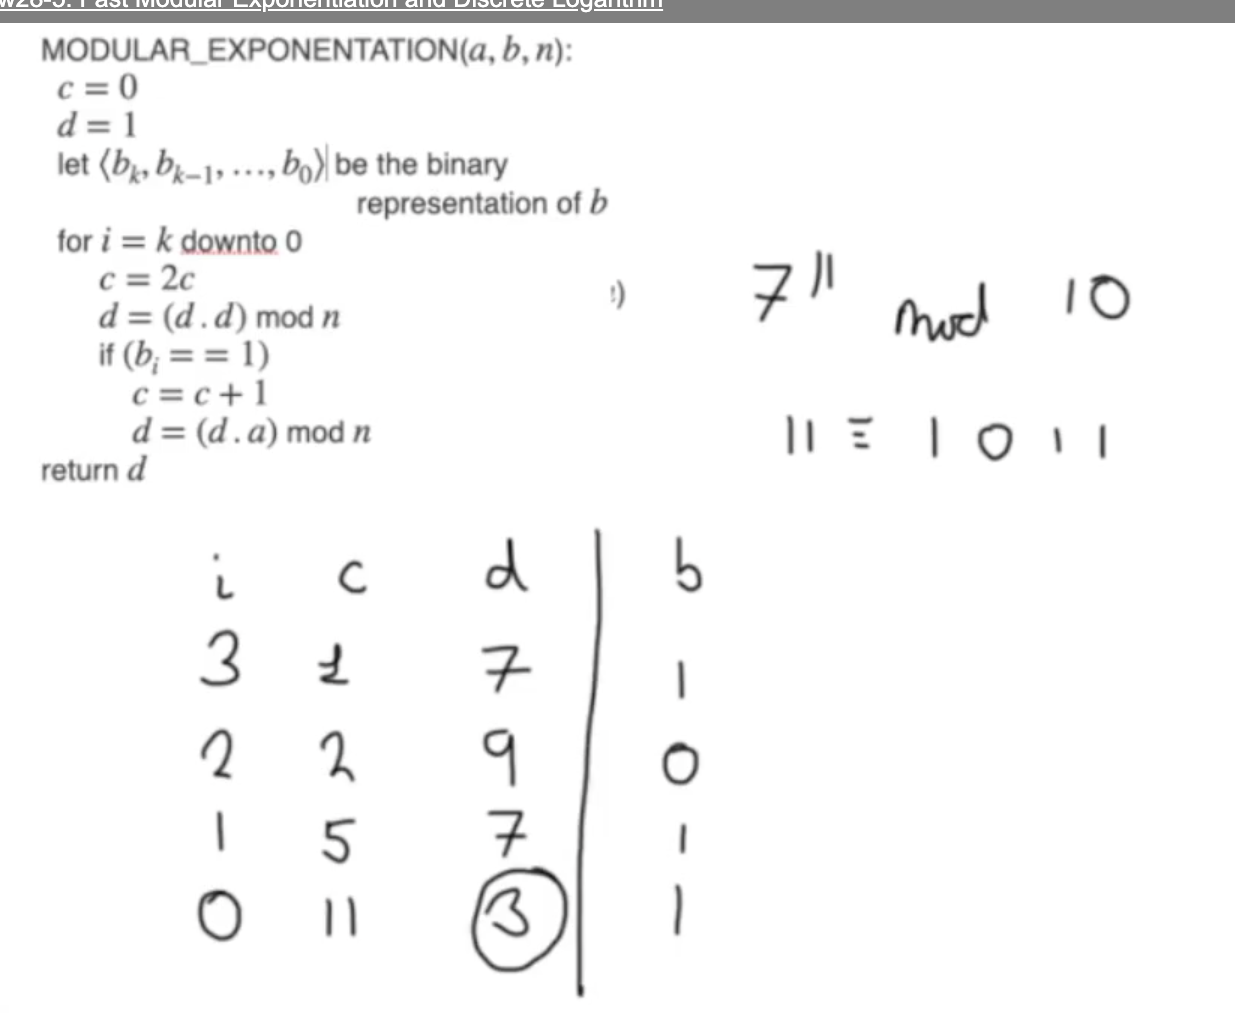 w28-5: Fast Modular Exponentiation and Discrete Logarithm
MODULAR_EXPONENTATION(a, b, n):
c = 0
d = 1
let ⟨bₖ, bₖ₋₁, …, b₀⟩ be the binary
representation of b
for i = k downto 0
c = 2c
d = (d . d) mod n
if (bᵢ = = 1)
c = c + 1
d = (d . a) mod n
return d
:)
7¹¹ mod 10
11 ≡ 1 0 1 1
i c d b
3 1 7 1
2 2 9 0
1 5 7 1
0 11 3 1